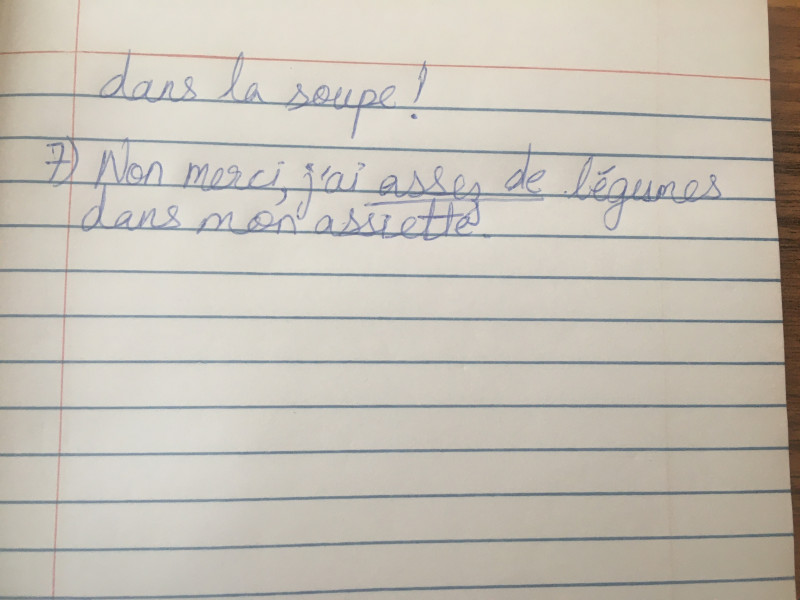 dans la soupe!
7) Non merci, j'ai assez de légumes
dans mon assiette.